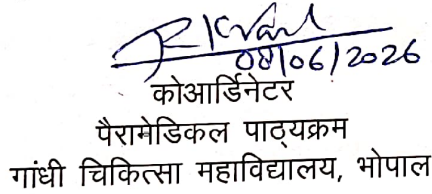 08/06/2026
कोआर्डिनेटर
पैरामेडिकल पाठ्यक्रम
गांधी चिकित्सा महाविद्यालय, भोपाल